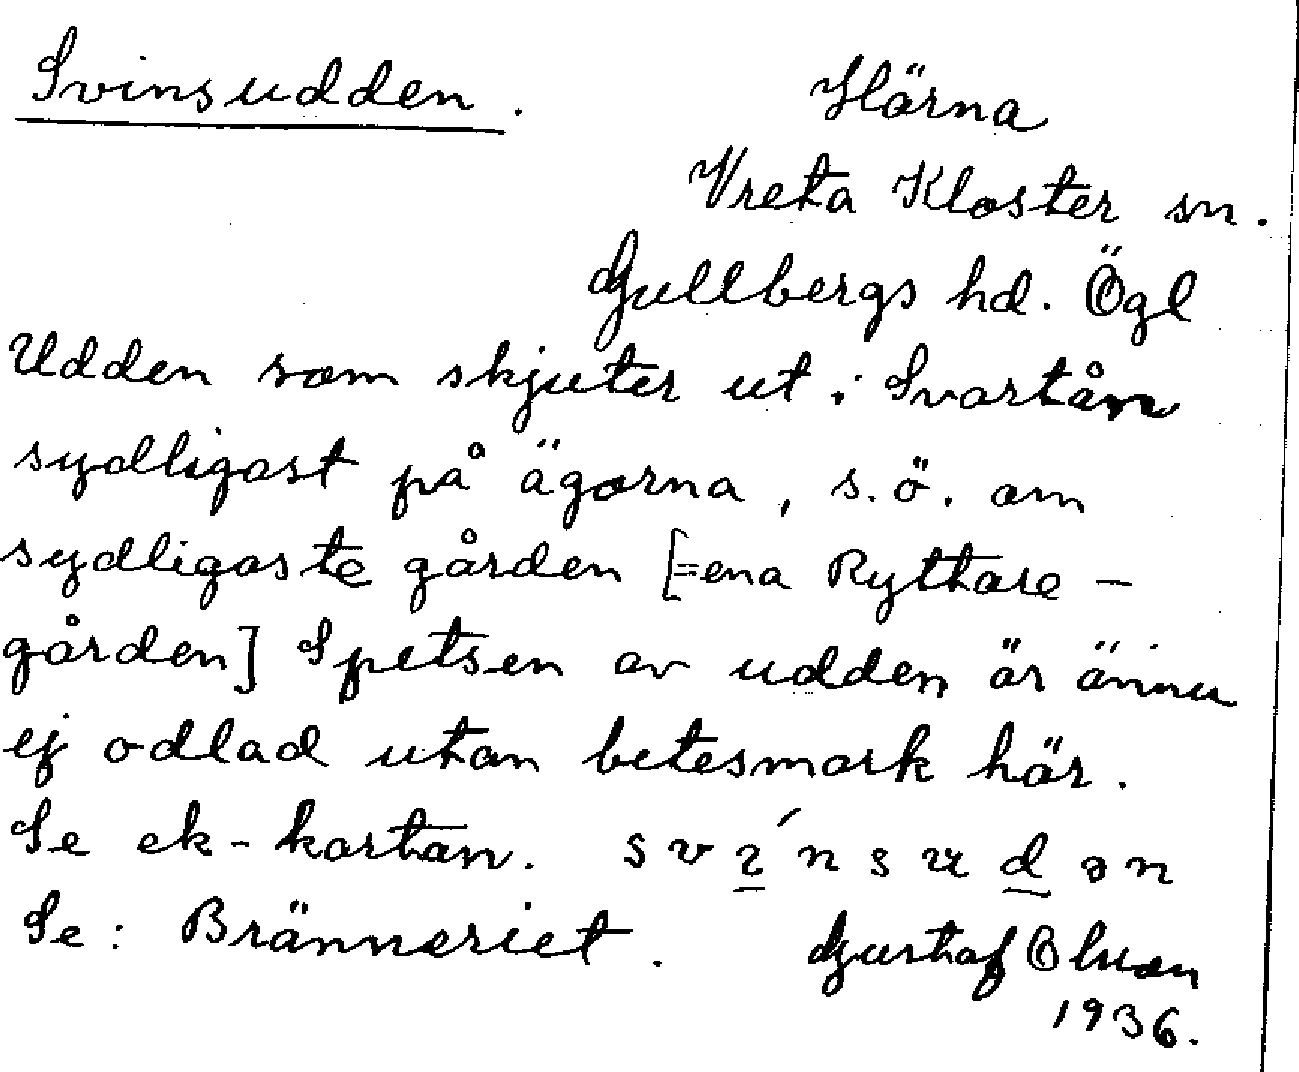 Svinsudden. Härna
Vreta Kloster sn.
Gullbergs hd. Ögl
Udden som skjuter ut i Svartån
sydligast på ägorna, s.ö. om
sydligaste gården [=ena Ryttare-
gården] Spetsen av udden är ännu
ej odlad utan betesmark här.
Se ek-kartan.
Se: Bränneriet. Gustaf Olsson
1936.